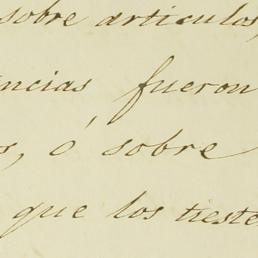 sobre articulos,
ncias, fueron
s, ó sobre
que los tieste